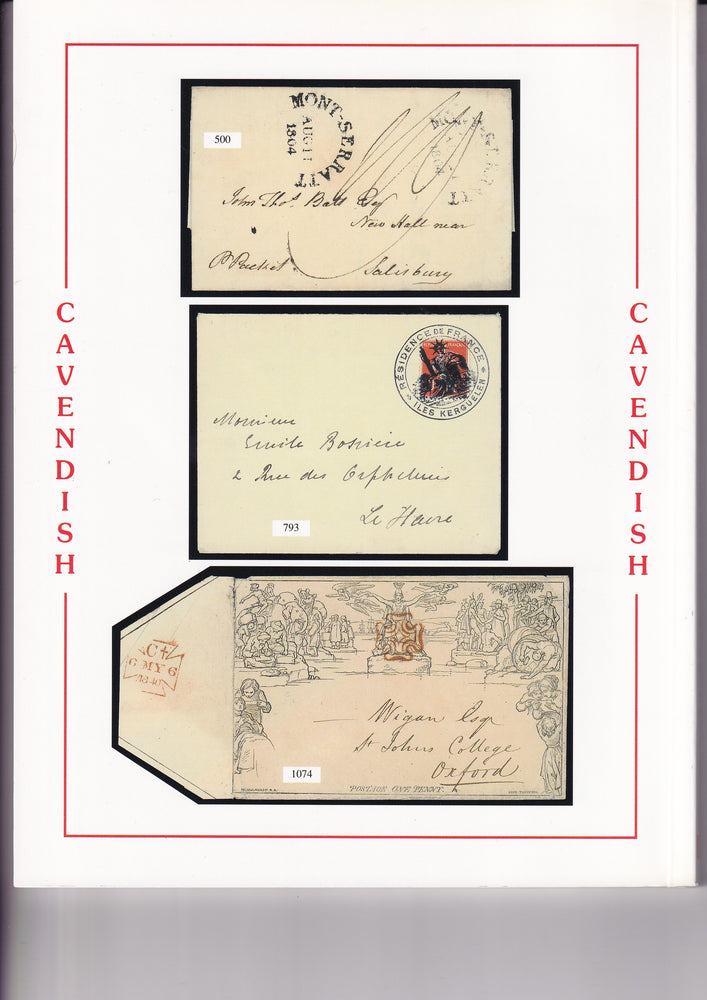 CAVENDISH
MONT-SERRATT
AUG 11
1804
500
John Thos. Batt Esqr
New Hall near
Salisbury
Pr Packet
RÉSIDENCE DE FRANCE
ILES KERGUELEN
Monsieur
Emile Bossière
2 Rue des Orphelines
Le Havre
793
C+
6 MY 6
1840
Wigan Esqr
St Johns College
Oxford
1074
POSTAGE ONE PENNY.
CAVENDISH